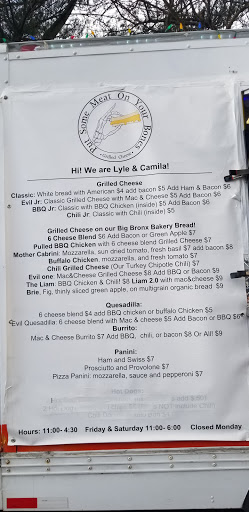 Put Some Meat On Your Bones
Grilled Cheese
Hi! We are Lyle & Camila!
Grilled Cheese
Classic: White bread with American $4 add bacon $5 Add Ham & Bacon $6
Evil Jr: Classic Grilled Cheese with Mac & Cheese $5 Add Bacon $6
BBQ Jr: Classic with BBQ Chicken (inside) $5 Add Bacon $6
Chili Jr: Classic with Chili (inside) $5
Grilled Cheese on our Big Bronx Bakery Bread!
6 Cheese Blend $6 Add Bacon or Green Apple $7
Pulled BBQ Chicken with 6 cheese blend Grilled Cheese $7
Mother Cabrini: Mozzarella, sun dried tomato, fresh basil $7 add bacon $8
Buffalo Chicken, mozzarella, and fresh tomato $7
Chili Grilled Cheese (Our Turkey Chipotle Chili) $7
Evil one: Mac&Cheese Grilled Cheese $8 Add BBQ or Bacon $9
The Liam: BBQ Chicken & Chili! $8 Liam 2.0 with mac&cheese $9
Brie, Fig, thinly sliced green apple, on multigrain organic bread $9
Quesadilla:
6 cheese blend $4 add BBQ chicken or buffalo Chicken $5
Evil Quesadilla: 6 cheese blend with Mac & cheese $5 Add Bacon or BBQ $6
Burrito:
Mac & Cheese Burrito $7 Add BBQ, chili, or bacon $8 Or All! $9
Panini:
Ham and Swiss $7
Prosciutto and Provolone $7
Pizza Panini: mozzarella, sauce and pepperoni $7
Hours: 11:00- 4:30 Friday & Saturday 11:00- 6:00 Closed Monday